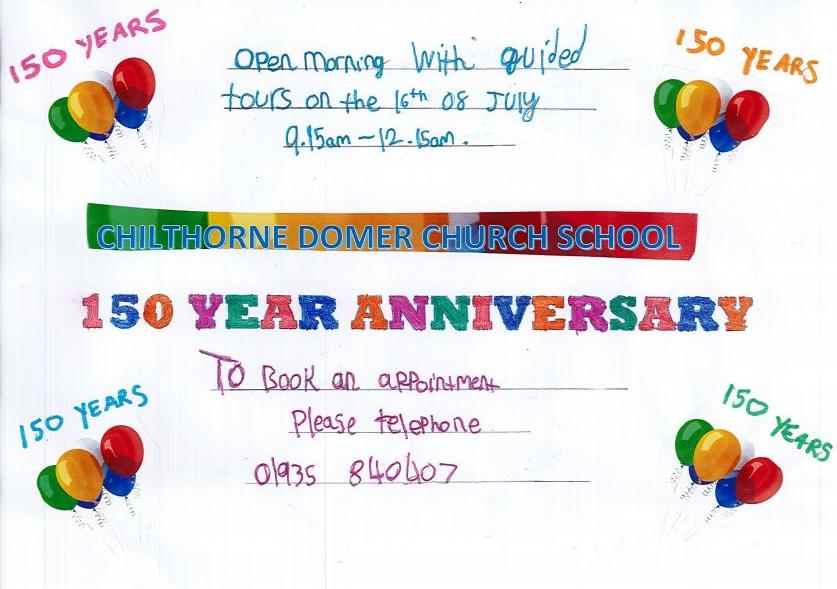 150 YEARS
150 YEARS
Open Morning With guided
tours on the 16th 08 July
9.15am - 12.15am.
CHILTHORNE DOMER CHURCH SCHOOL
150 YEAR ANNIVERSARY
To Book an appointment
Please telephone
01935 840407
150 YEARS
150 YEARS